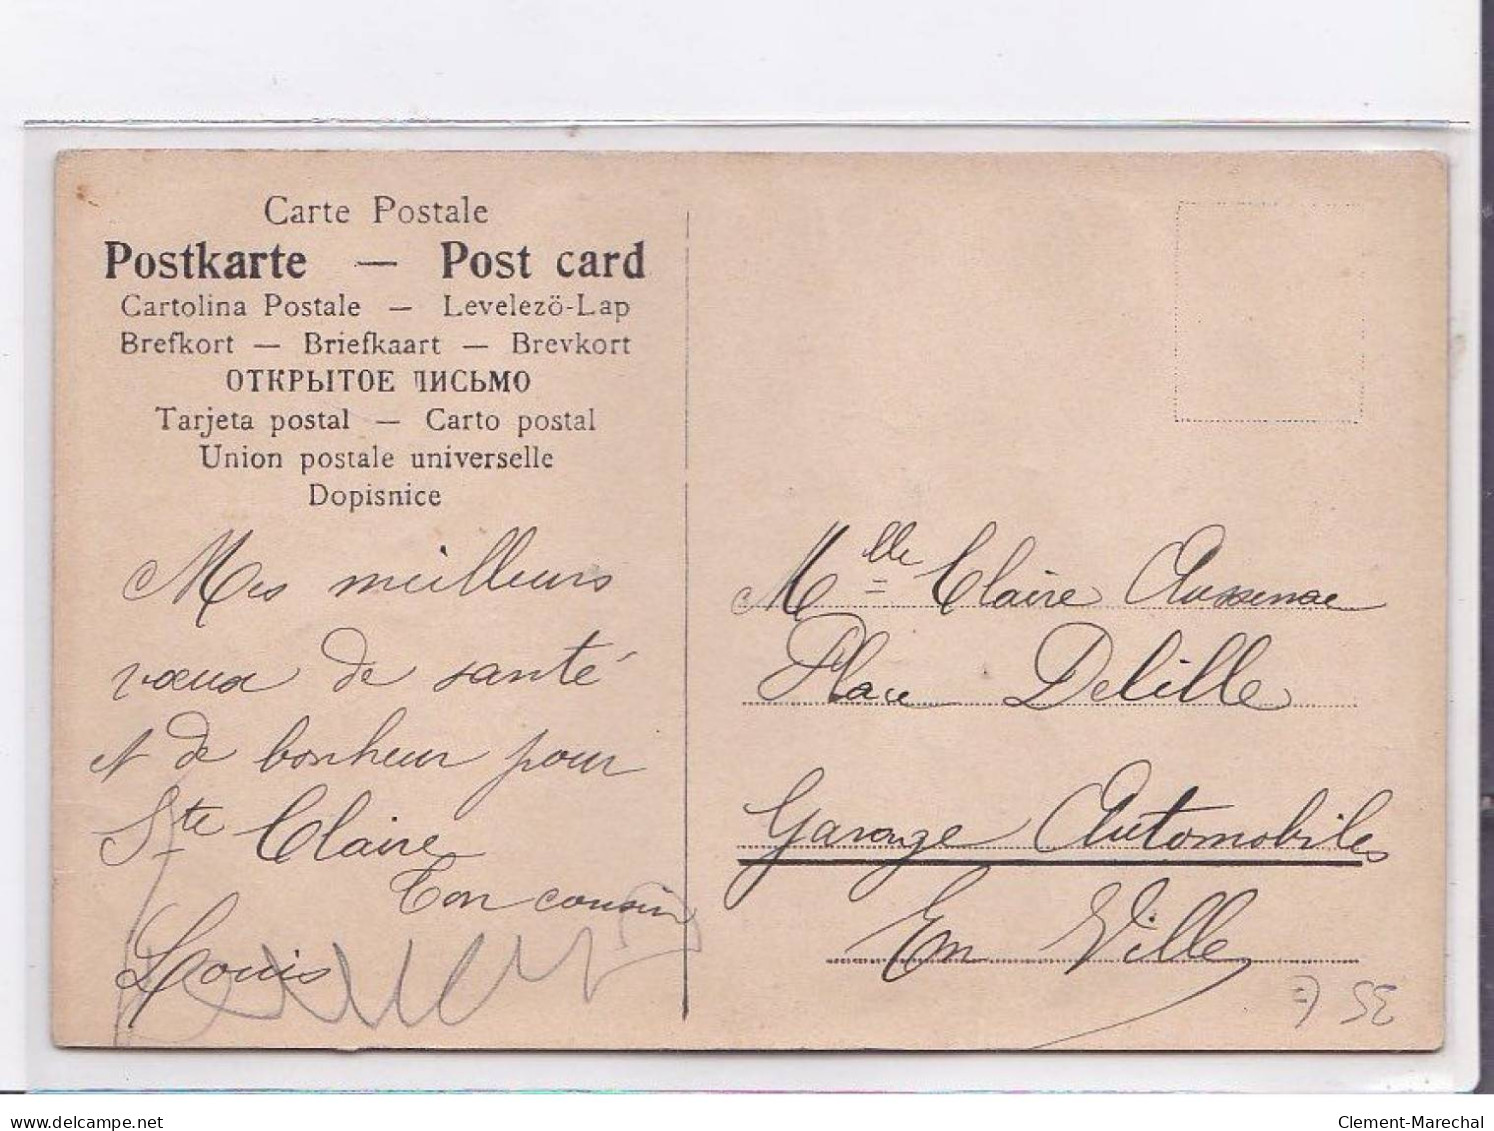 Carte Postale
Postkarte — Post card
Cartolina Postale — Levelezö-Lap
Brefkort — Briefkaart — Brevkort
ОТКРЫТОЕ ПИСЬМО
Tarjeta postal — Carto postal
Union postale universelle
Dopisnice
Mes meilleurs
vœux de santé
et de bonheur pour
Ste Claire
Ton cousin
Louis
Mlle Claire Aussenac
Place Delille
Garage Automobiles
En Ville
35 €
www.delcampe.net
Clement-Marechal